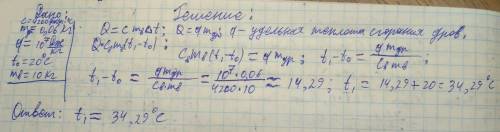 Дано:
c=4200
m=0,06 кг
q=10⁷
t₀=20°C
mв=10 кг
Решение:
Q=c mв Δt; Q=q mдр; q - удельная теплота сгорания дров.
Q=Cвmв(t₁-t₀)
Cвmв(t₁-t₀) = q mдр; t₁-t₀ = q mдр / Cвmв;
t₁-t₀ = q mдр / Cв mв = 10⁷·0,06 / 4200·10 ≈ 14,29; t₁ = 14,29+20=34,29°C
Ответ: t₁= 34,29°C.